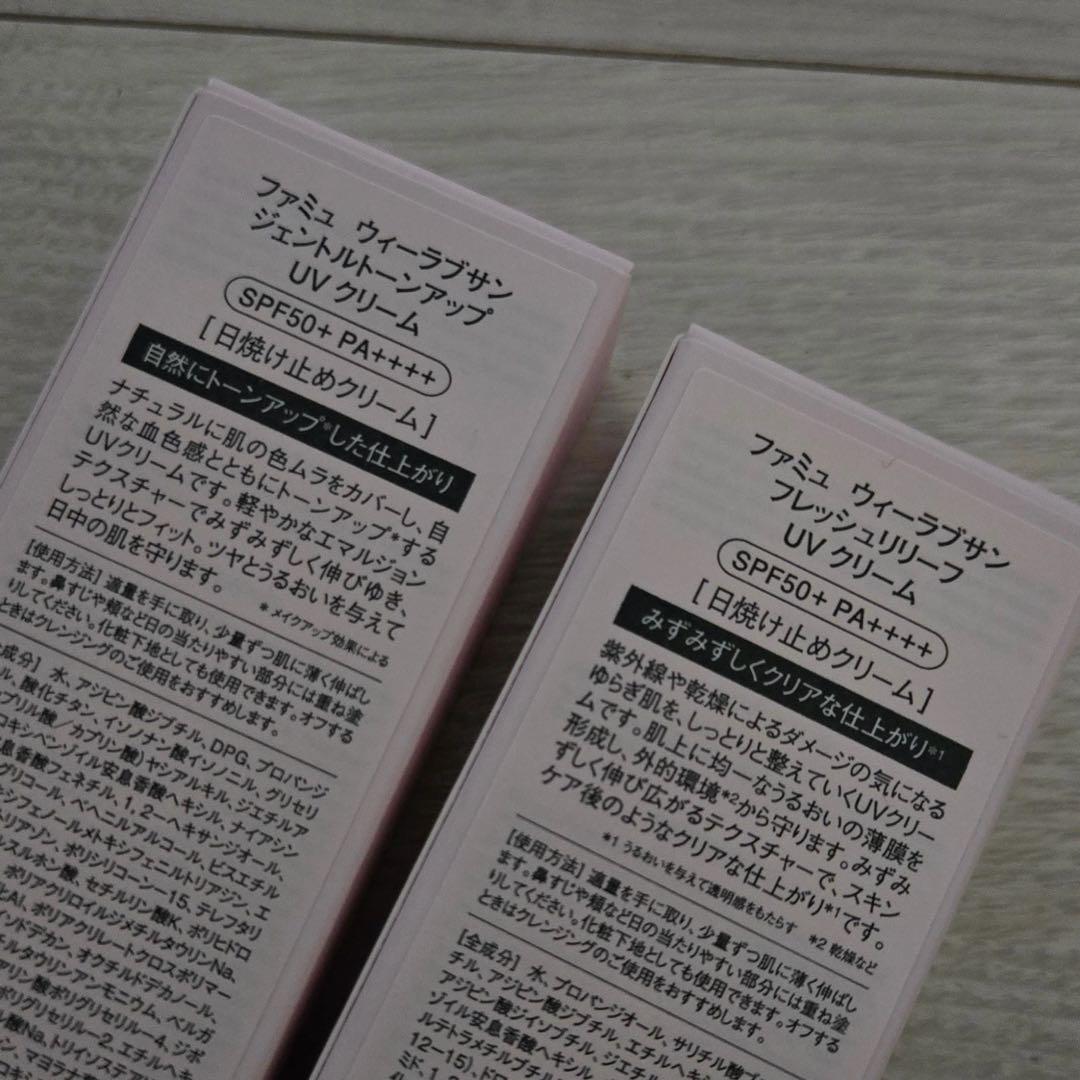 ファミュ ウィーラブサン
ジェントルトーンアップ
UV クリーム
SPF50+ PA++++
[日焼け止めクリーム]
自然にトーンアップ*した仕上がり
ナチュラルに肌の色ムラをカバーし、自
然な血色感とともにトーンアップ*する
UVクリームです。軽やかなエマルジョン
テクスチャーでみずみずしく伸びゆき、
しっとりとフィット。ツヤとうるおいを与えて
日中の肌を守ります。
* メイクアップ効果による
[使用方法] 適量を手に取り、少量ずつ肌に薄く伸ばし
ます。鼻すじや頬など日の当たりやすい部分には重ね塗
りしてください。化粧下地としても使用できます。オフする
ときはクレンジングのご使用をおすすめします。
全成分] 水、アジピン酸ジブチル、DPG、プロパンジ
ル、酸化チタン、イソノナン酸イソノニル、グリセリ
プリル酸/カプリン酸)ヤシアルキル、ジエチルア
ロキシベンゾイル安息香酸ヘキシル、ナイアシン
息香酸フェネチル、1,2-ヘキサンジオール、
グリコール、ベヘニルアルコール、ビスエチル
キシフェノールメトキシフェニルトリアジン、エ
ルトリアゾン、ポリシリコーン-15、テレフタリ
ルスルホン酸、セチルリン酸K、ポリヒドロ
ポリアクリロイルジメチルタウリンNa、
AI、ポリアクリレートクロスポリマー
インドデカン、オクチルドデカノール、
チルタウリンアンモニウム、ベルガ
アリン酸ポリグリセリル-4、ジポ
ポリグリセリル-2、エチルヘキ
酸Na、トリイソステア
ン、マヨラナ
ファミュ ウィーラブサン
フレッシュリリーフ
UV クリーム
SPF50+ PA++++
[日焼け止めクリーム]
みずみずしくクリアな仕上がり*1
紫外線や乾燥によるダメージの気になる
ゆらぎ肌を、しっとりと整えていくUVクリー
ムです。肌上に均一なうるおいの薄膜を
形成し、外的環境*2から守ります。みずみ
ずしく伸び広がるテクスチャーで、スキン
ケア後のようなクリアな仕上がり*1です。
*1 うるおいを与えて透明感をもたらす *2 乾燥など
[使用方法] 適量を手に取り、少量ずつ肌に薄く伸ばし
ます。鼻すじや頬など日の当たりやすい部分には重ね塗
りしてください。化粧下地としても使用できます。オフする
ときはクレンジングのご使用をおすすめします。
[全成分] 水、プロパンジオール、サリチル酸ブ
チル、アジピン酸ジブチル、エチルヘキシ
アジピン酸ジイソブチル、ジエチル
ゾイル安息香酸ヘキシル
ルテトラメチルブチル
12-15)、ドロ
ミド、1,2